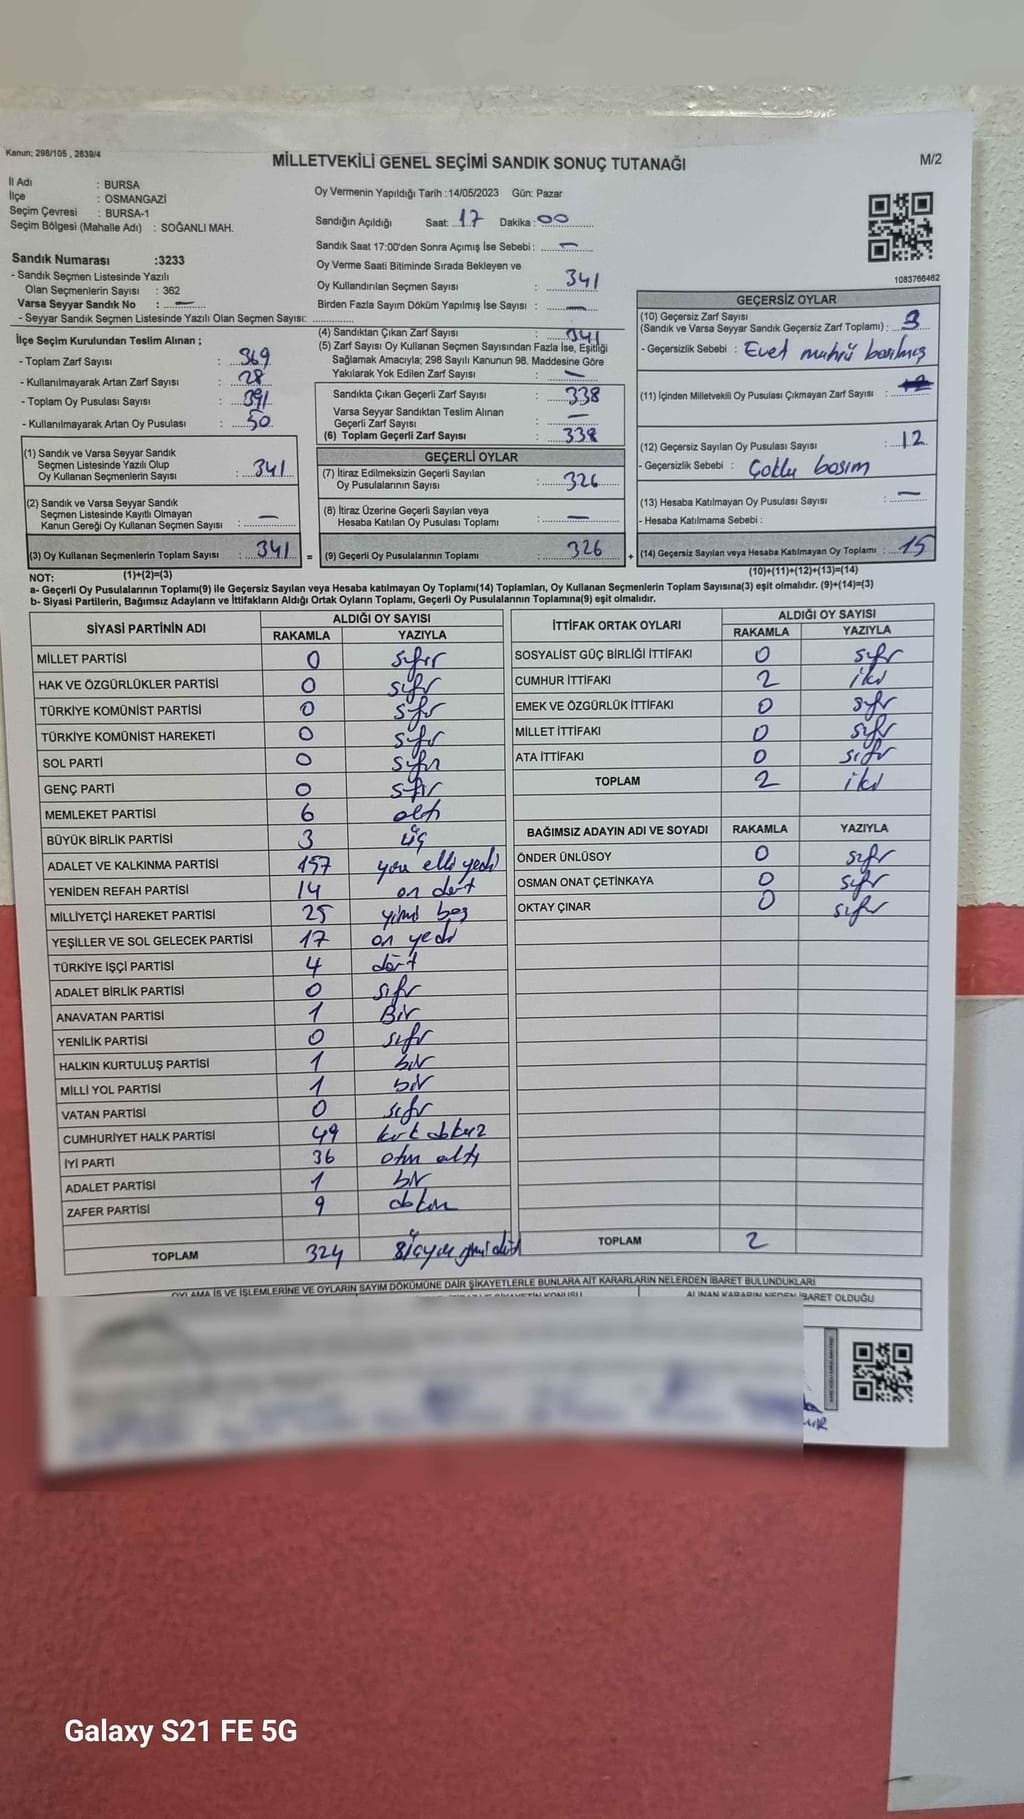 Kanun; 298/105 , 2839/4
MİLLETVEKİLİ GENEL SEÇİMİ SANDIK SONUÇ TUTANAĞI
M/2
İl Adı : BURSA
İlçe : OSMANGAZİ
Seçim Çevresi : BURSA-1
Seçim Bölgesi (Mahalle Adı) : SOĞANLI MAH.
Oy Vermenin Yapıldığı Tarih :14/05/2023 Gün: Pazar
Sandığın Açıldığı Saat: 17 Dakika : 00
Sandık Saat 17:00'den Sonra Açımış İse Sebebi : —
Oy Verme Saati Bitiminde Sırada Bekleyen ve
Oy Kullandırılan Seçmen Sayısı : 341
Birden Fazla Sayım Döküm Yapılmış İse Sayısı : —
Sandık Numarası :3233
- Sandık Seçmen Listesinde Yazılı
Olan Seçmenlerin Sayısı : 362
Varsa Seyyar Sandık No : —
- Seyyar Sandık Seçmen Listesinde Yazılı Olan Seçmen Sayısı:
İlçe Seçim Kurulundan Teslim Alınan ;
- Toplam Zarf Sayısı : 369
- Kullanılmayarak Artan Zarf Sayısı : 28
- Toplam Oy Pusulası Sayısı : 391
- Kullanılmayarak Artan Oy Pusulası : 50
(1) Sandık ve Varsa Seyyar Sandık
Seçmen Listesinde Yazılı Olup
Oy Kullanan Seçmenlerin Sayısı : 341
(2) Sandık ve Varsa Seyyar Sandık
Seçmen Listesinde Kayıtlı Olmayan
Kanun Gereği Oy Kullanan Seçmen Sayısı : —
(3) Oy Kullanan Seçmenlerin Toplam Sayısı : 341 =
(4) Sandıktan Çıkan Zarf Sayısı : 341
(5) Zarf Sayısı Oy Kullanan Seçmen Sayısından Fazla İse, Eşitliği
Sağlamak Amacıyla; 298 Sayılı Kanunun 98. Maddesine Göre
Yakılarak Yok Edilen Zarf Sayısı : —
Sandıkta Çıkan Geçerli Zarf Sayısı : 338
Varsa Seyyar Sandıktan Teslim Alınan
Geçerli Zarf Sayısı : —
(6) Toplam Geçerli Zarf Sayısı : 338
GEÇERLİ OYLAR
(7) İtiraz Edilmeksizin Geçerli Sayılan
Oy Pusulalarının Sayısı : 326
(8) İtiraz Üzerine Geçerli Sayılan veya
Hesaba Katılan Oy Pusulası Toplamı : —
(9) Geçerli Oy Pusulalarının Toplamı : 326 +
1083766462
GEÇERSİZ OYLAR
(10) Geçersiz Zarf Sayısı
(Sandık ve Varsa Seyyar Sandık Geçersiz Zarf Toplamı) : 3
- Geçersizlik Sebebi : Evet mührü basılmış
(11) İçinden Milletvekili Oy Pusulası Çıkmayan Zarf Sayısı :
(12) Geçersiz Sayılan Oy Pusulası Sayısı : 12
- Geçersizlik Sebebi : Çoklu basım
(13) Hesaba Katılmayan Oy Pusulası Sayısı : —
- Hesaba Katılmama Sebebi :
(14) Geçersiz Sayılan veya Hesaba Katılmayan Oy Toplamı : 15
NOT: (1)+(2)=(3)
(10)+(11)+(12)+(13)=(14)
a- Geçerli Oy Pusulalarının Toplamı(9) ile Geçersiz Sayılan veya Hesaba katılmayan Oy Toplamı(14) Toplamları, Oy Kullanan Seçmenlerin Toplam Sayısına(3) eşit olmalıdır. (9)+(14)=(3)
b- Siyasi Partilerin, Bağımsız Adayların ve İttifakların Aldığı Ortak Oyların Toplamı, Geçerli Oy Pusulalarının Toplamına(9) eşit olmalıdır.
SİYASİ PARTİNİN ADI ALDIĞI OY SAYISI
RAKAMLA YAZIYLA
MİLLET PARTİSİ 0 sıfır
HAK VE ÖZGÜRLÜKLER PARTİSİ 0 sıfır
TÜRKİYE KOMÜNİST PARTİSİ 0 sıfır
TÜRKİYE KOMÜNİST HAREKETİ 0 sıfır
SOL PARTİ 0 sıfır
GENÇ PARTİ 0 sıfır
MEMLEKET PARTİSİ 6 altı
BÜYÜK BİRLİK PARTİSİ 3 üç
ADALET VE KALKINMA PARTİSİ 157 yüz elli yedi
YENİDEN REFAH PARTİSİ 14 on dört
MİLLİYETÇİ HAREKET PARTİSİ 25 yirmi beş
YEŞİLLER VE SOL GELECEK PARTİSİ 17 on yedi
TÜRKİYE İŞÇİ PARTİSİ 4 dört
ADALET BİRLİK PARTİSİ 0 sıfır
ANAVATAN PARTİSİ 1 Bir
YENİLİK PARTİSİ 0 sıfır
HALKIN KURTULUŞ PARTİSİ 1 bir
MİLLİ YOL PARTİSİ 1 bir
VATAN PARTİSİ 0 sıfır
CUMHURİYET HALK PARTİSİ 49 kırk dokuz
İYİ PARTİ 36 otuz altı
ADALET PARTİSİ 1 bir
ZAFER PARTİSİ 9 dokuz
TOPLAM 324 üçyüz yirmi dört
İTTİFAK ORTAK OYLARI ALDIĞI OY SAYISI
RAKAMLA YAZIYLA
SOSYALİST GÜÇ BİRLİĞİ İTTİFAKI 0 sıfır
CUMHUR İTTİFAKI 2 iki
EMEK VE ÖZGÜRLÜK İTTİFAKI 0 sıfır
MİLLET İTTİFAKI 0 sıfır
ATA İTTİFAKI 0 sıfır
TOPLAM 2 iki
BAĞIMSIZ ADAYIN ADI VE SOYADI RAKAMLA YAZIYLA
ÖNDER ÜNLÜSOY 0 sıfır
OSMAN ONAT ÇETİNKAYA 0 sıfır
OKTAY ÇINAR 0 sıfır
TOPLAM 2
OYLAMA İŞ VE İŞLEMLERİNE VE OYLARIN SAYIM DÖKÜMÜNE DAİR ŞİKAYETLERLE BUNLARA AİT KARARLARIN NELERDEN İBARET BULUNDUKLARI
ALINAN KARARIN NEDEN İBARET OLDUĞU
Galaxy S21 FE 5G